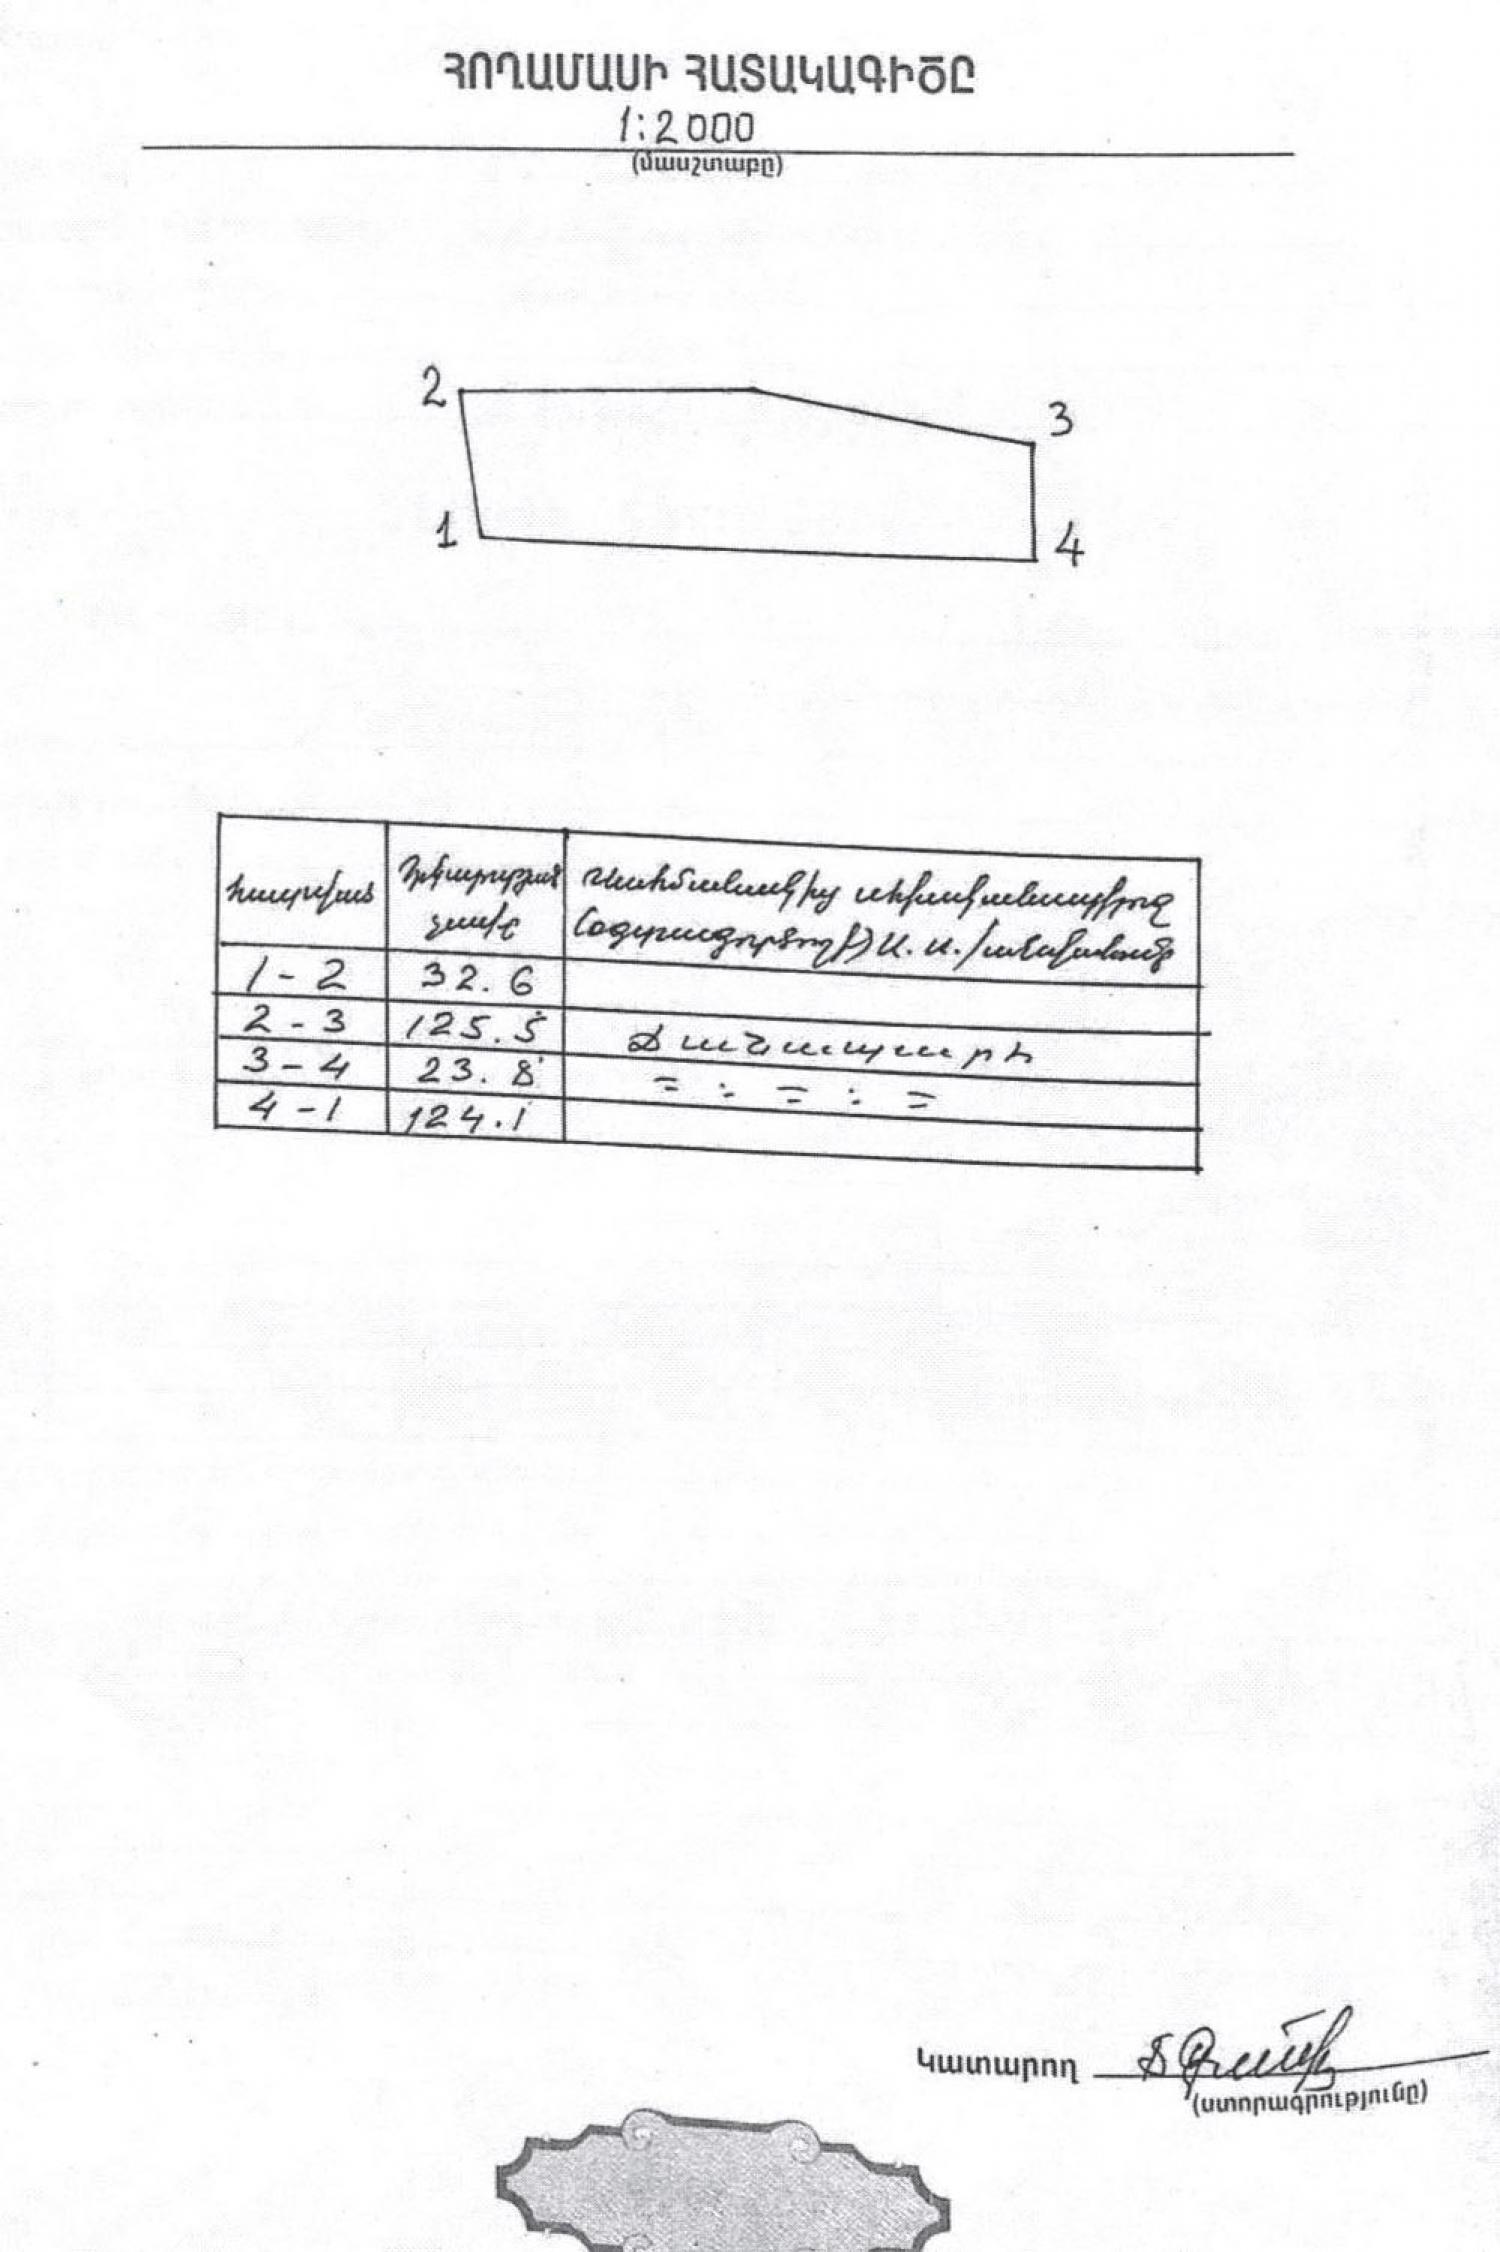 ՀՈՂԱՄԱՍԻ ՀԱՏԱԿԱԳԻԾԸ
1:2000
(մասշտաբը)
2
3
1
4
Հատված
Երկարության
չափը
Սահմանակից սեփականատերը
(օգտագործողի) Ա. Ա. /անվանումը
1-2 32.6
2-3 125.5 Ճանապարհ
3-4 23.8 = : = : =
4-1 124.1
Կատարող
(ստորագրությունը)